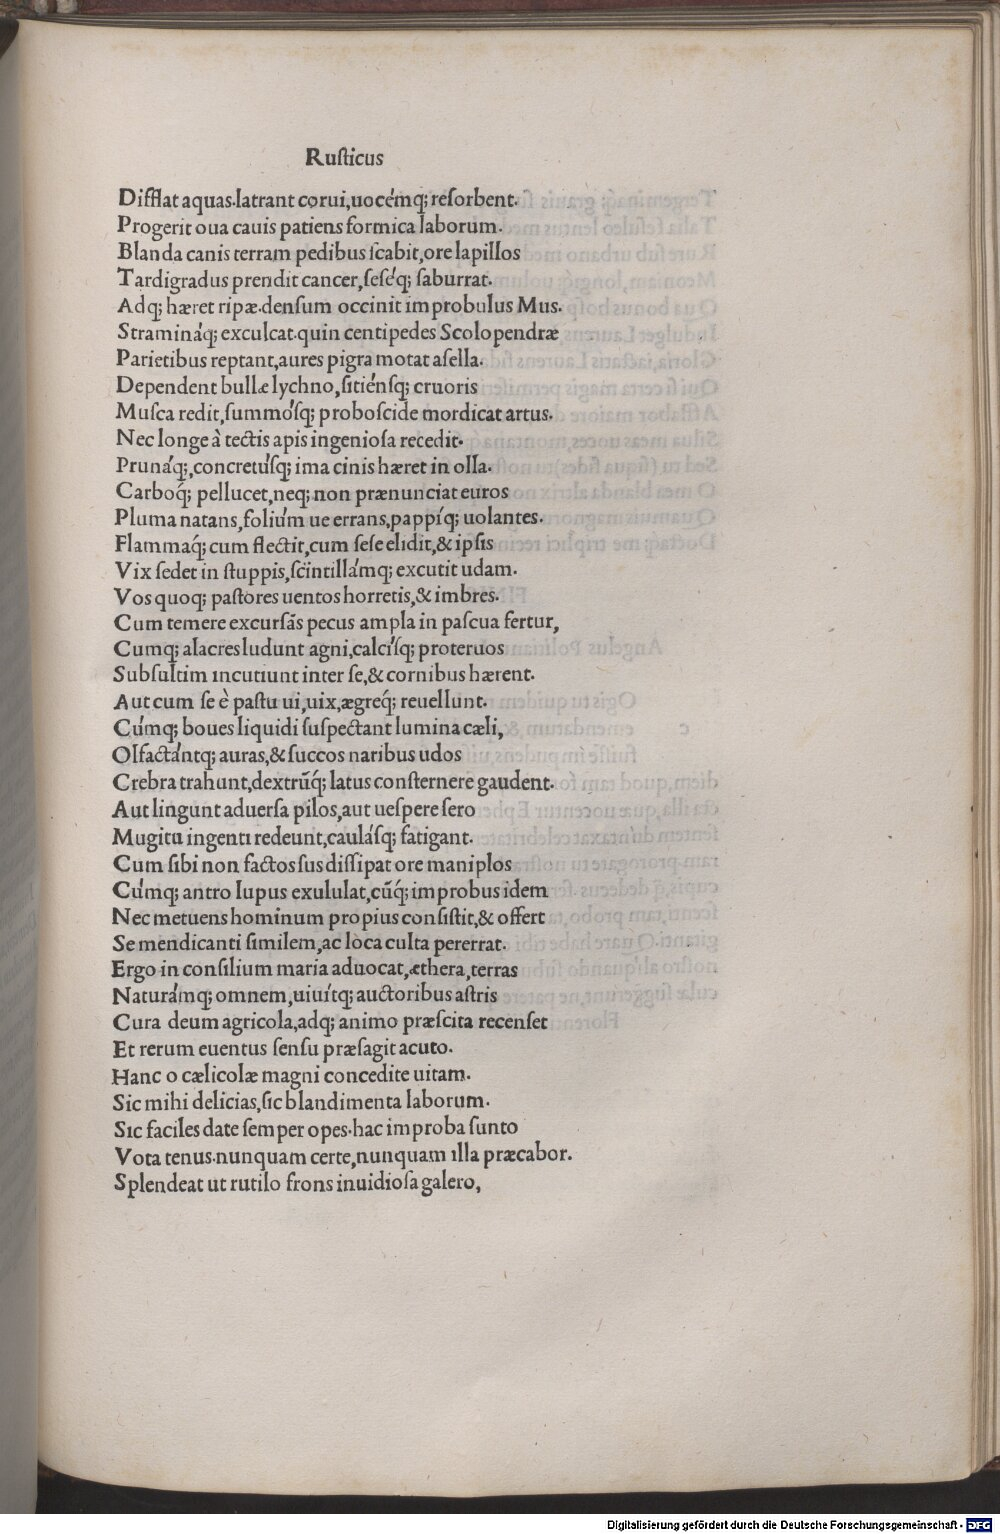 Ruſticus
Difflat aquas.latrant corui,uocémq; reſorbent.
Progerit oua cauis patiens formica laborum.
Blanda canis terram pedibus ſcabit,ore lapillos
Tardigradus prendit cancer,ſeſéq; ſaburrat.
Adq; hæret ripæ.denſum occinit improbulus Mus.
Straminaq́; exculcat.quin centipedes Scolopendræ
Parietibus reptant,aures pigra motat aſella.
Dependent bullæ lychno,ſitiénſq; cruoris
Muſca redit,ſummóſq; proboſcide mordicat artus.
Nec longe à tectis apis ingenioſa recedit.
Prunáq;,concretúſq; ima cinis hæret in olla.
Carboq́; pellucet,neq; non prænunciat euros
Pluma natans,folium ue errans,pappíq; uolantes.
Flammaq́; cum flectit,cum ſeſe elidit,& ipſis
Vix ſedet in ſtuppis,ſcintillámq; excutit udam.
Vos quoq; paſtores uentos horretis,& imbres.
Cum temere excurſãs pecus ampla in paſcua fertur,
Cumq; alacres ludunt agni,calcíſq; proteruos
Subſultim incutiunt inter ſe,& cornibus hærent.
Aut cum ſe è paſtu ui,uix,ægreq́; reuellunt.
Cúmq; boues liquidi ſuſpectant lumina cæli,
Olfactántq; auras,& ſuccos naribus udos
Crebra trahunt,dextrũq́; latus conſternere gaudent.
Aut lingunt aduerſa pilos,aut ueſpere ſero
Mugitu ingenti redeunt,cauláſq; fatigant.
Cum ſibi non factos ſus diſſipat ore maniplos
Cúmq; antro lupus exululat,cũq́; improbus idem
Nec metuens hominum propius conſiſtit,& offert
Se mendicanti ſimilem,ac loca culta pererrat.
Ergo in conſilium maria aduocat,æthera,terras
Naturámq; omnem,uiuítq; auctoribus aſtris
Cura deum agricola,adq; animo præſcita recenſet
Et rerum euentus ſenſu præſagit acuto.
Hanc o cælicolæ magni concedite uitam.
Sic mihi delicias,ſic blandimenta laborum.
Sic faciles date ſemper opes.hac improba ſunto
Vota tenus.nunquam certe,nunquam illa præcabor.
Splendeat ut rutilo frons inuidioſa galero,
Digitalisierung gefördert durch die Deutsche Forschungsgemeinschaft - DFG